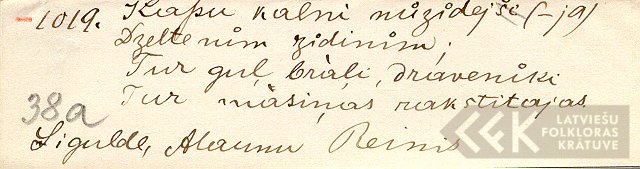 1019. Kapu kalni nūzidejši (-ja)
Dzeltenim zidinim;
Tur guļ brāļi, draveniki
38a Tur māsiņas rakstitajas
Sigulde, Alaunu Reinis
LATVIEŠU
FOLKLORAS
KRĀTUVE